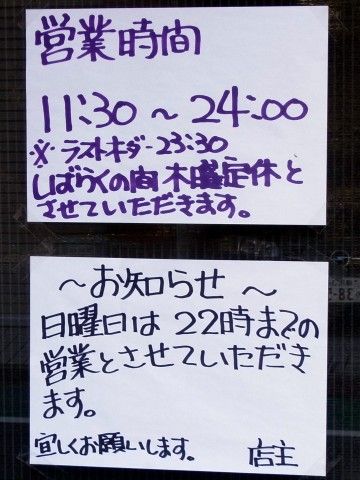 営業時間
11:30 ～ 24:00
※ラストオーダー23:30
しばらくの間 木曜定休と
させていただきます。
～お知らせ～
日曜日は 22時までの
営業とさせていただき
ます。
宜しくお願いします。 店主